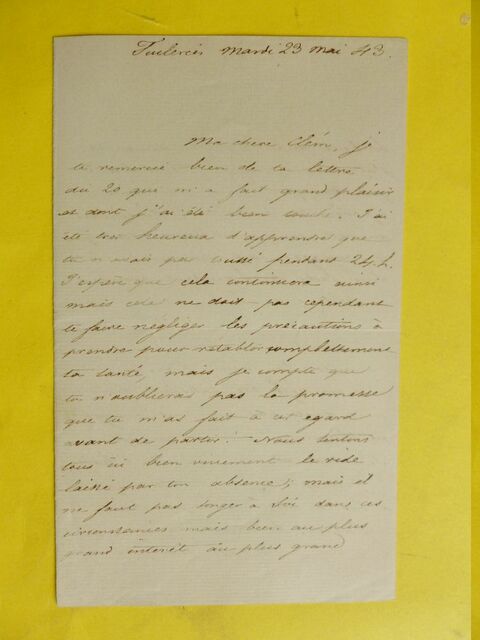 Tuileries mardi 23 mai 43.
Ma chere Clém, je
te remercie bien de ta lettre
du 20 qui m'a fait grand plaisir
et dont j'ai été bien touché. J'ai
été tres heureux d'apprendre que
tu n'avais pas toussé pendant 24 h.
J'espère que cela continuera ainsi
mais cela ne doit pas cependant
te faire négliger les précautions à
prendre pour retablir complettement
ta santé, mais je compte que
tu n'oublieras pas la promesse
que tu m'as fait à cet egard
avant de partir. Nous sentons
tous ici bien vivement le vide
laissé par ton absence; mais il
ne faut pas songer à soi dans ces
circonstances mais bien au plus
grand interêt au plus grand